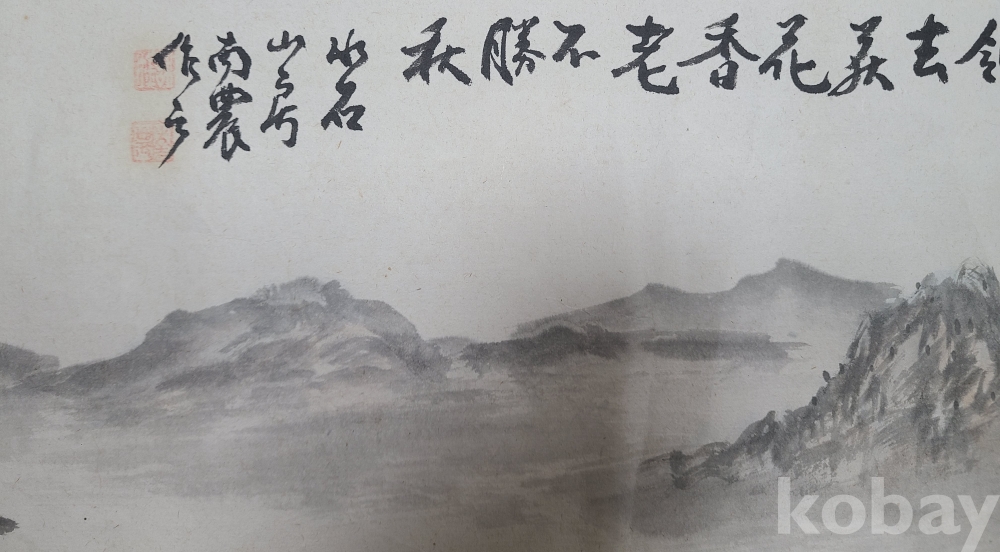 去
花
香
老
不
勝
秋
水石
山房
南農
作
kobay